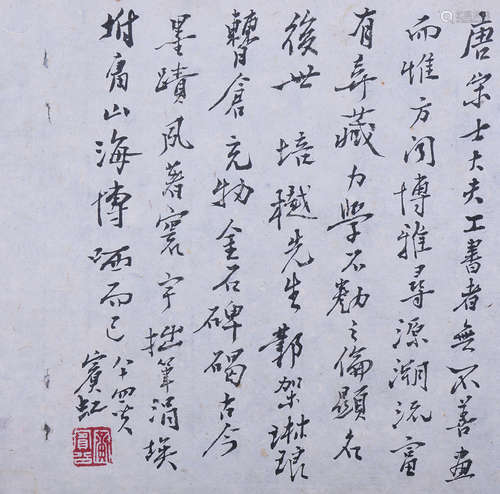 唐宋士大夫工書者無不善畫
而惟方聞博雅尋源溯流富
有弆藏力學不勌之倫顯名
後世培樾先生鄴架琳琅
曹倉充牣金石碑碣古今
墨蹟夙著寰宇拙筆涓埃
坿庸山海博哂而已八十四叟
賓虹